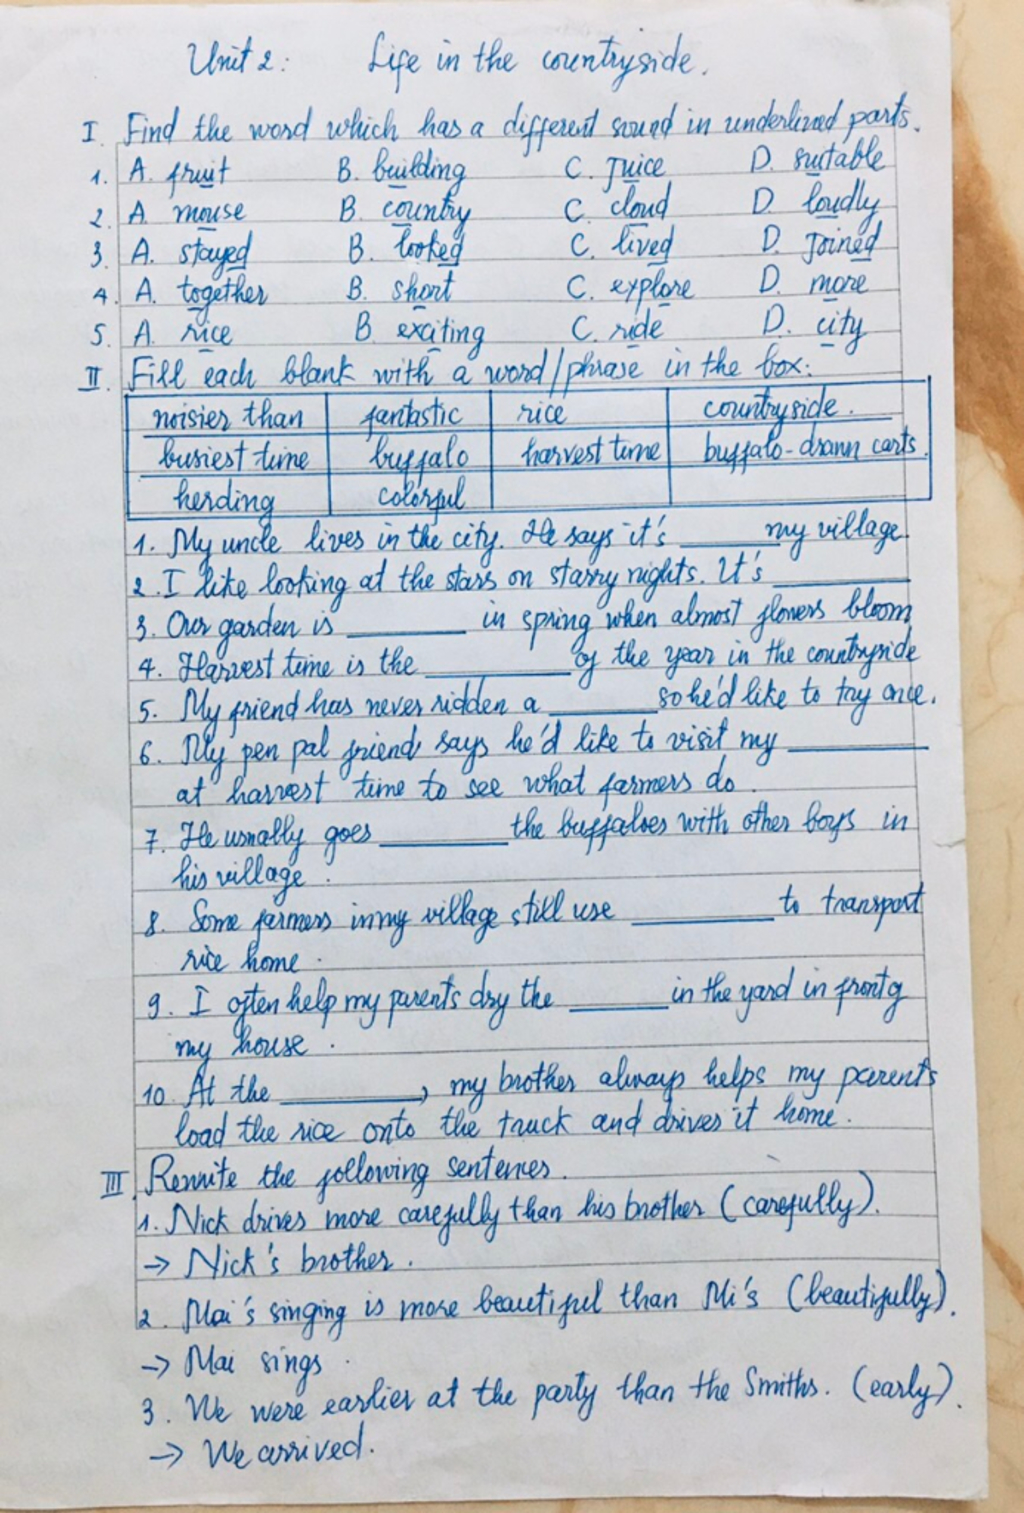 Unit 2: Life in the countryside.
I. Find the word which has a different sound in underlined parts.
1. A. fruit B. building C. juice D. suitable
2. A. mouse B. country C. cloud D. loudly
3. A. stayed B. looked C. lived D. joined
4. A. together B. short C. explore D. more
5. A. rice B. exciting C. ride D. city
II. Fill each blank with a word/phrase in the box:
noisier than fantastic rice countryside.
busiest time buffalo harvest time buffalo-drawn carts.
herding colorful
1. My uncle lives in the city. He says it's ______ my village.
2. I like looking at the stars on starry nights. It's ______
3. Our garden is ______ in spring when almost flowers bloom
4. Harvest time is the ______ of the year in the countryside
5. My friend has never ridden a ______ so he'd like to try once.
6. My pen pal friend says he'd like to visit my ______
at harvest time to see what farmers do.
7. He usually goes ______ the buffaloes with other boys in
his village.
8. Some farmers in my village still use ______ to transport
rice home.
9. I often help my parents dry the ______ in the yard in front of
my house.
10 At the ______, my brother always helps my parents
load the rice onto the truck and drives it home.
III. Rewrite the following sentences.
1. Nick drives more carefully than his brother (carefully).
→ Nick's brother.
2. Mai's singing is more beautiful than Mi's (beautifully).
→ Mai sings.
3. We were earlier at the party than the Smiths. (early).
→ We arrived.